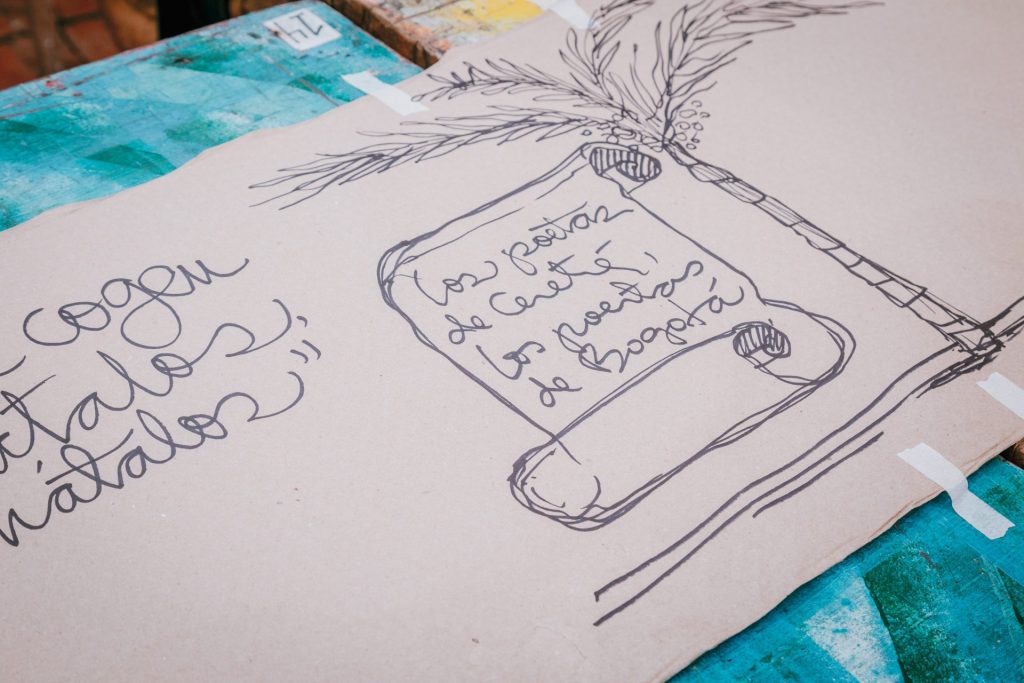 cogen
átalos,
mátalos”
los poetas
de Cereté,
los poetas
de Bogotá
14